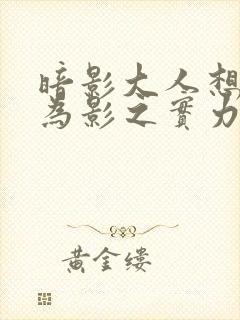 暗影大人想
為影之實力
黃金縷